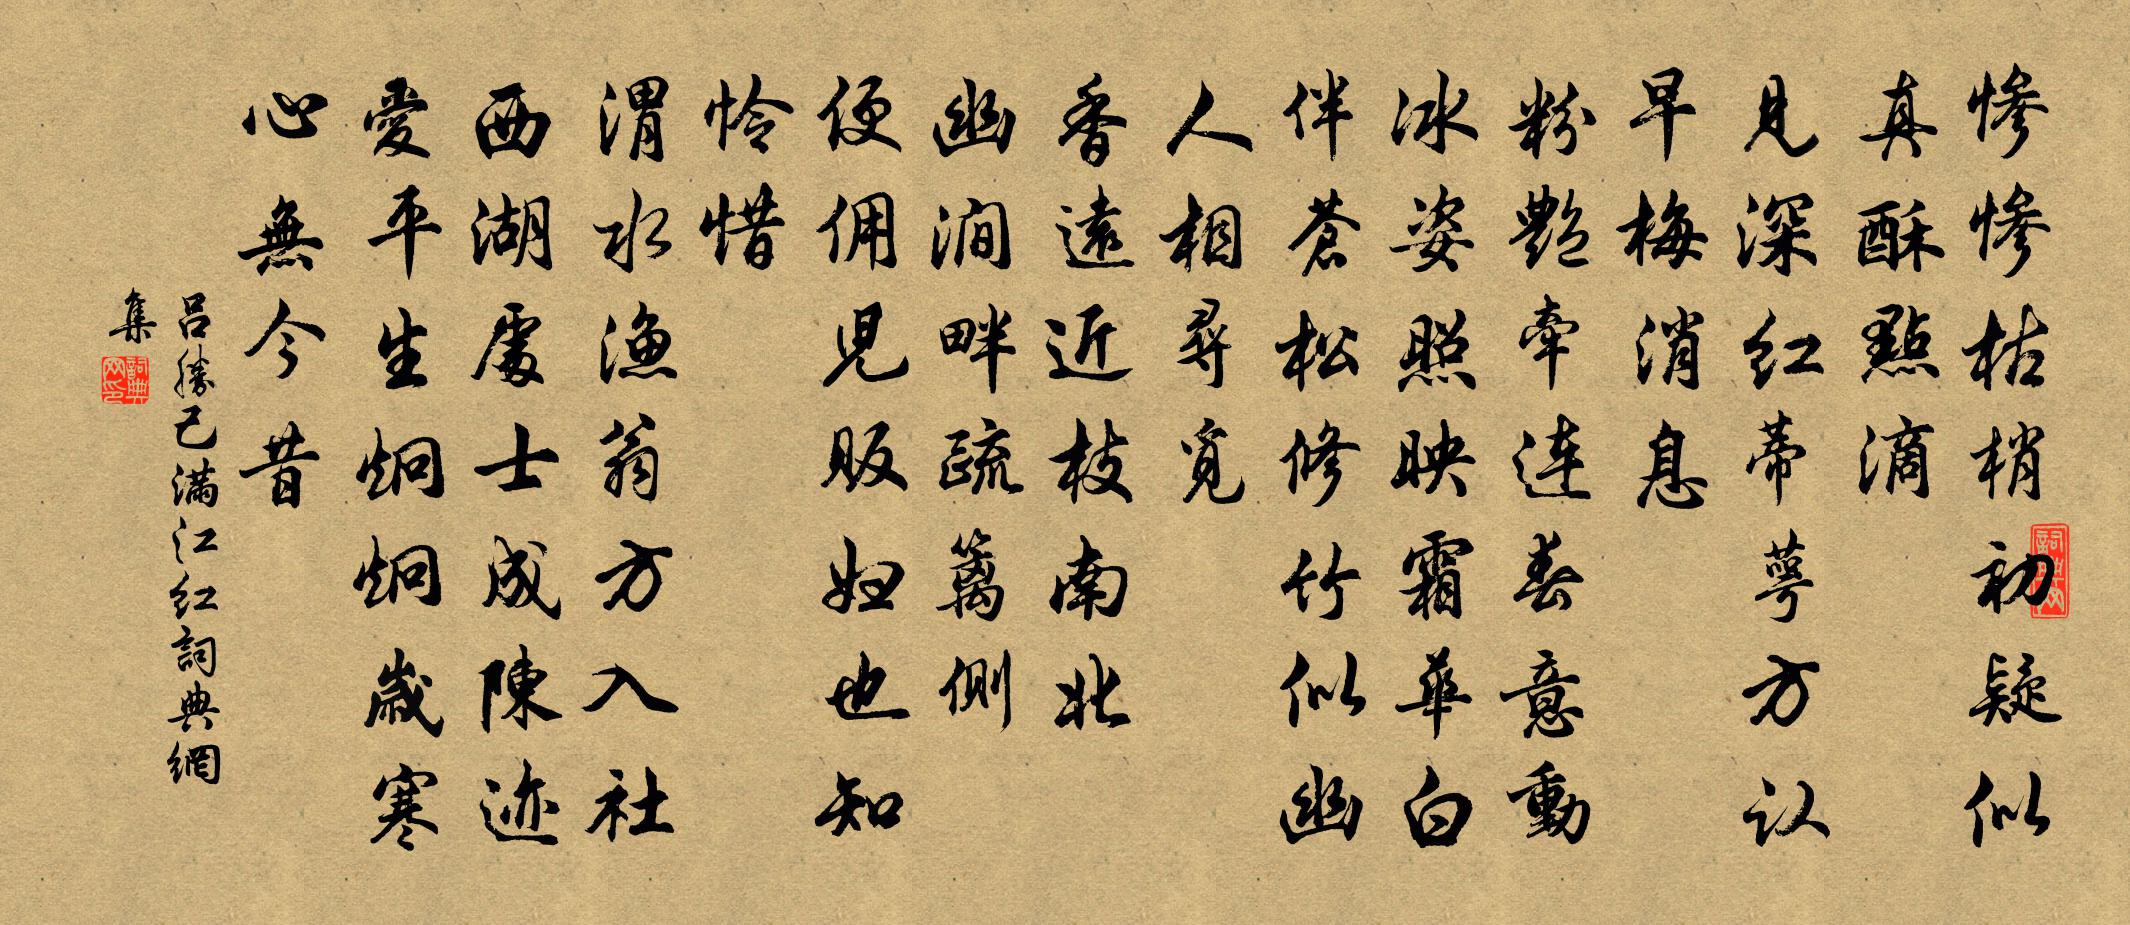 慘慘枯梢初疑似
真酥點滴
見深红蒂萼方认
早梅消息
粉艷牽连春意動
冰姿照映霜華白
伴苍松修竹似幽
人相尋覓
香遠近枝南北
幽澗畔疏籬側
便佣兒販妇也知
怜惜
渭水漁翁方入社
西湖處士成陳迹
愛平生炯炯歲寒
心無今昔
吕勝己满江红詞典網
集
詞典網
詞典網印